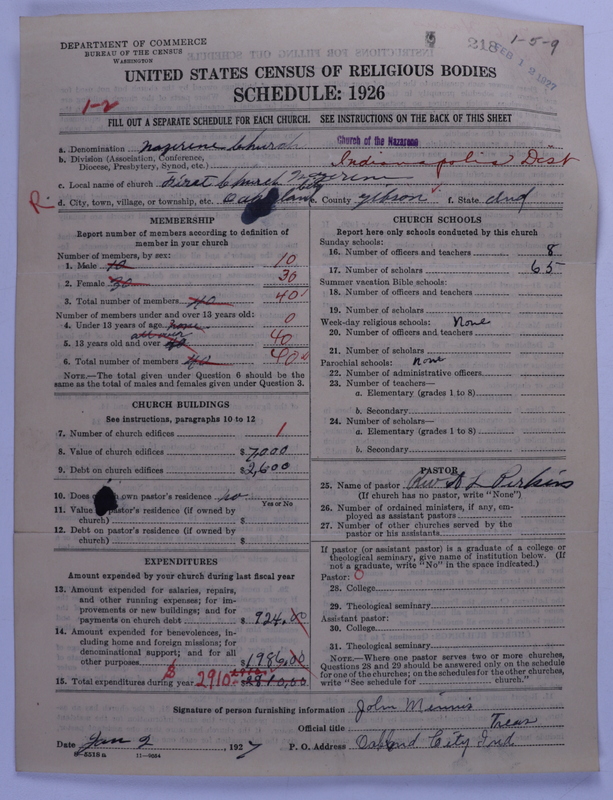 DEPARTMENT OF COMMERCE
BUREAU OF THE CENSUS
WASHINGTON
218
1-5-9
FEB 12 1927
UNITED STATES CENSUS OF RELIGIOUS BODIES
SCHEDULE: 1926
1-2
FILL OUT A SEPARATE SCHEDULE FOR EACH CHURCH. SEE INSTRUCTIONS ON THE BACK OF THIS SHEET
Church of the Nazarene
a. Denomination Nazerine Church
b. Division (Association, Conference, Diocese, Presbytery, Synod, etc.) Indianapolis Dist
c. Local name of church First Church Nazerine
R. d. City, town, village, or township, etc. Oakland City e. County Gibson f. State Ind
MEMBERSHIP
Report number of members according to definition of member in your church
Number of members, by sex:
1. Male 10 10
2. Female 30 30
3. Total number of members 40 40
Number of members under and over 13 years old:
4. Under 13 years of age none 0
5. 13 years old and over all over 40 40
6. Total number of members 40 40
NOTE.—The total given under Question 6 should be the same as the total of males and females given under Question 3.
CHURCH BUILDINGS
See instructions, paragraphs 10 to 12
7. Number of church edifices 1
8. Value of church edifices $7,000
9. Debt on church edifices $2,600
10. Does own pastor's residence no
Yes or No
11. Value pastor's residence (if owned by church) $
12. Debt on pastor's residence (if owned by church) $
EXPENDITURES
Amount expended by your church during last fiscal year
13. Amount expended for salaries, repairs, and other running expenses; for improvements or new buildings; and for payments on church debt $924.00
14. Amount expended for benevolences, including home and foreign missions; for denominational support; and for all other purposes $1986.00
15. Total expenditures during year $2910
CHURCH SCHOOLS
Report here only schools conducted by this church
Sunday schools:
16. Number of officers and teachers 8
17. Number of scholars 65
Summer vacation Bible schools:
18. Number of officers and teachers
19. Number of scholars
Week-day religious schools: None
20. Number of officers and teachers
21. Number of scholars
Parochial schools: None
22. Number of administrative officers
23. Number of teachers—
a. Elementary (grades 1 to 8)
b. Secondary
24. Number of scholars—
a. Elementary (grades 1 to 8)
b. Secondary
PASTOR
25. Name of pastor Rev D L Perkins
(If church has no pastor, write "None")
26. Number of ordained ministers, if any, employed as assistant pastors
27. Number of other churches served by the pastor or his assistants
If pastor (or assistant pastor) is a graduate of a college or theological seminary, give name of institution below. (If not a graduate, write "No" in the space indicated.)
Pastor: O
28. College
29. Theological seminary
Assistant pastor:
30. College
31. Theological seminary
NOTE.—Where one pastor serves two or more churches, Questions 28 and 29 should be answered only on the schedule for one of the churches; on the schedules for the other churches, write "See schedule for church."
Signature of person furnishing information John Minnis
Official title Treas
Date Jan 2, 1927 P. O. Address Oakland City Ind
8—5518a 11—9084